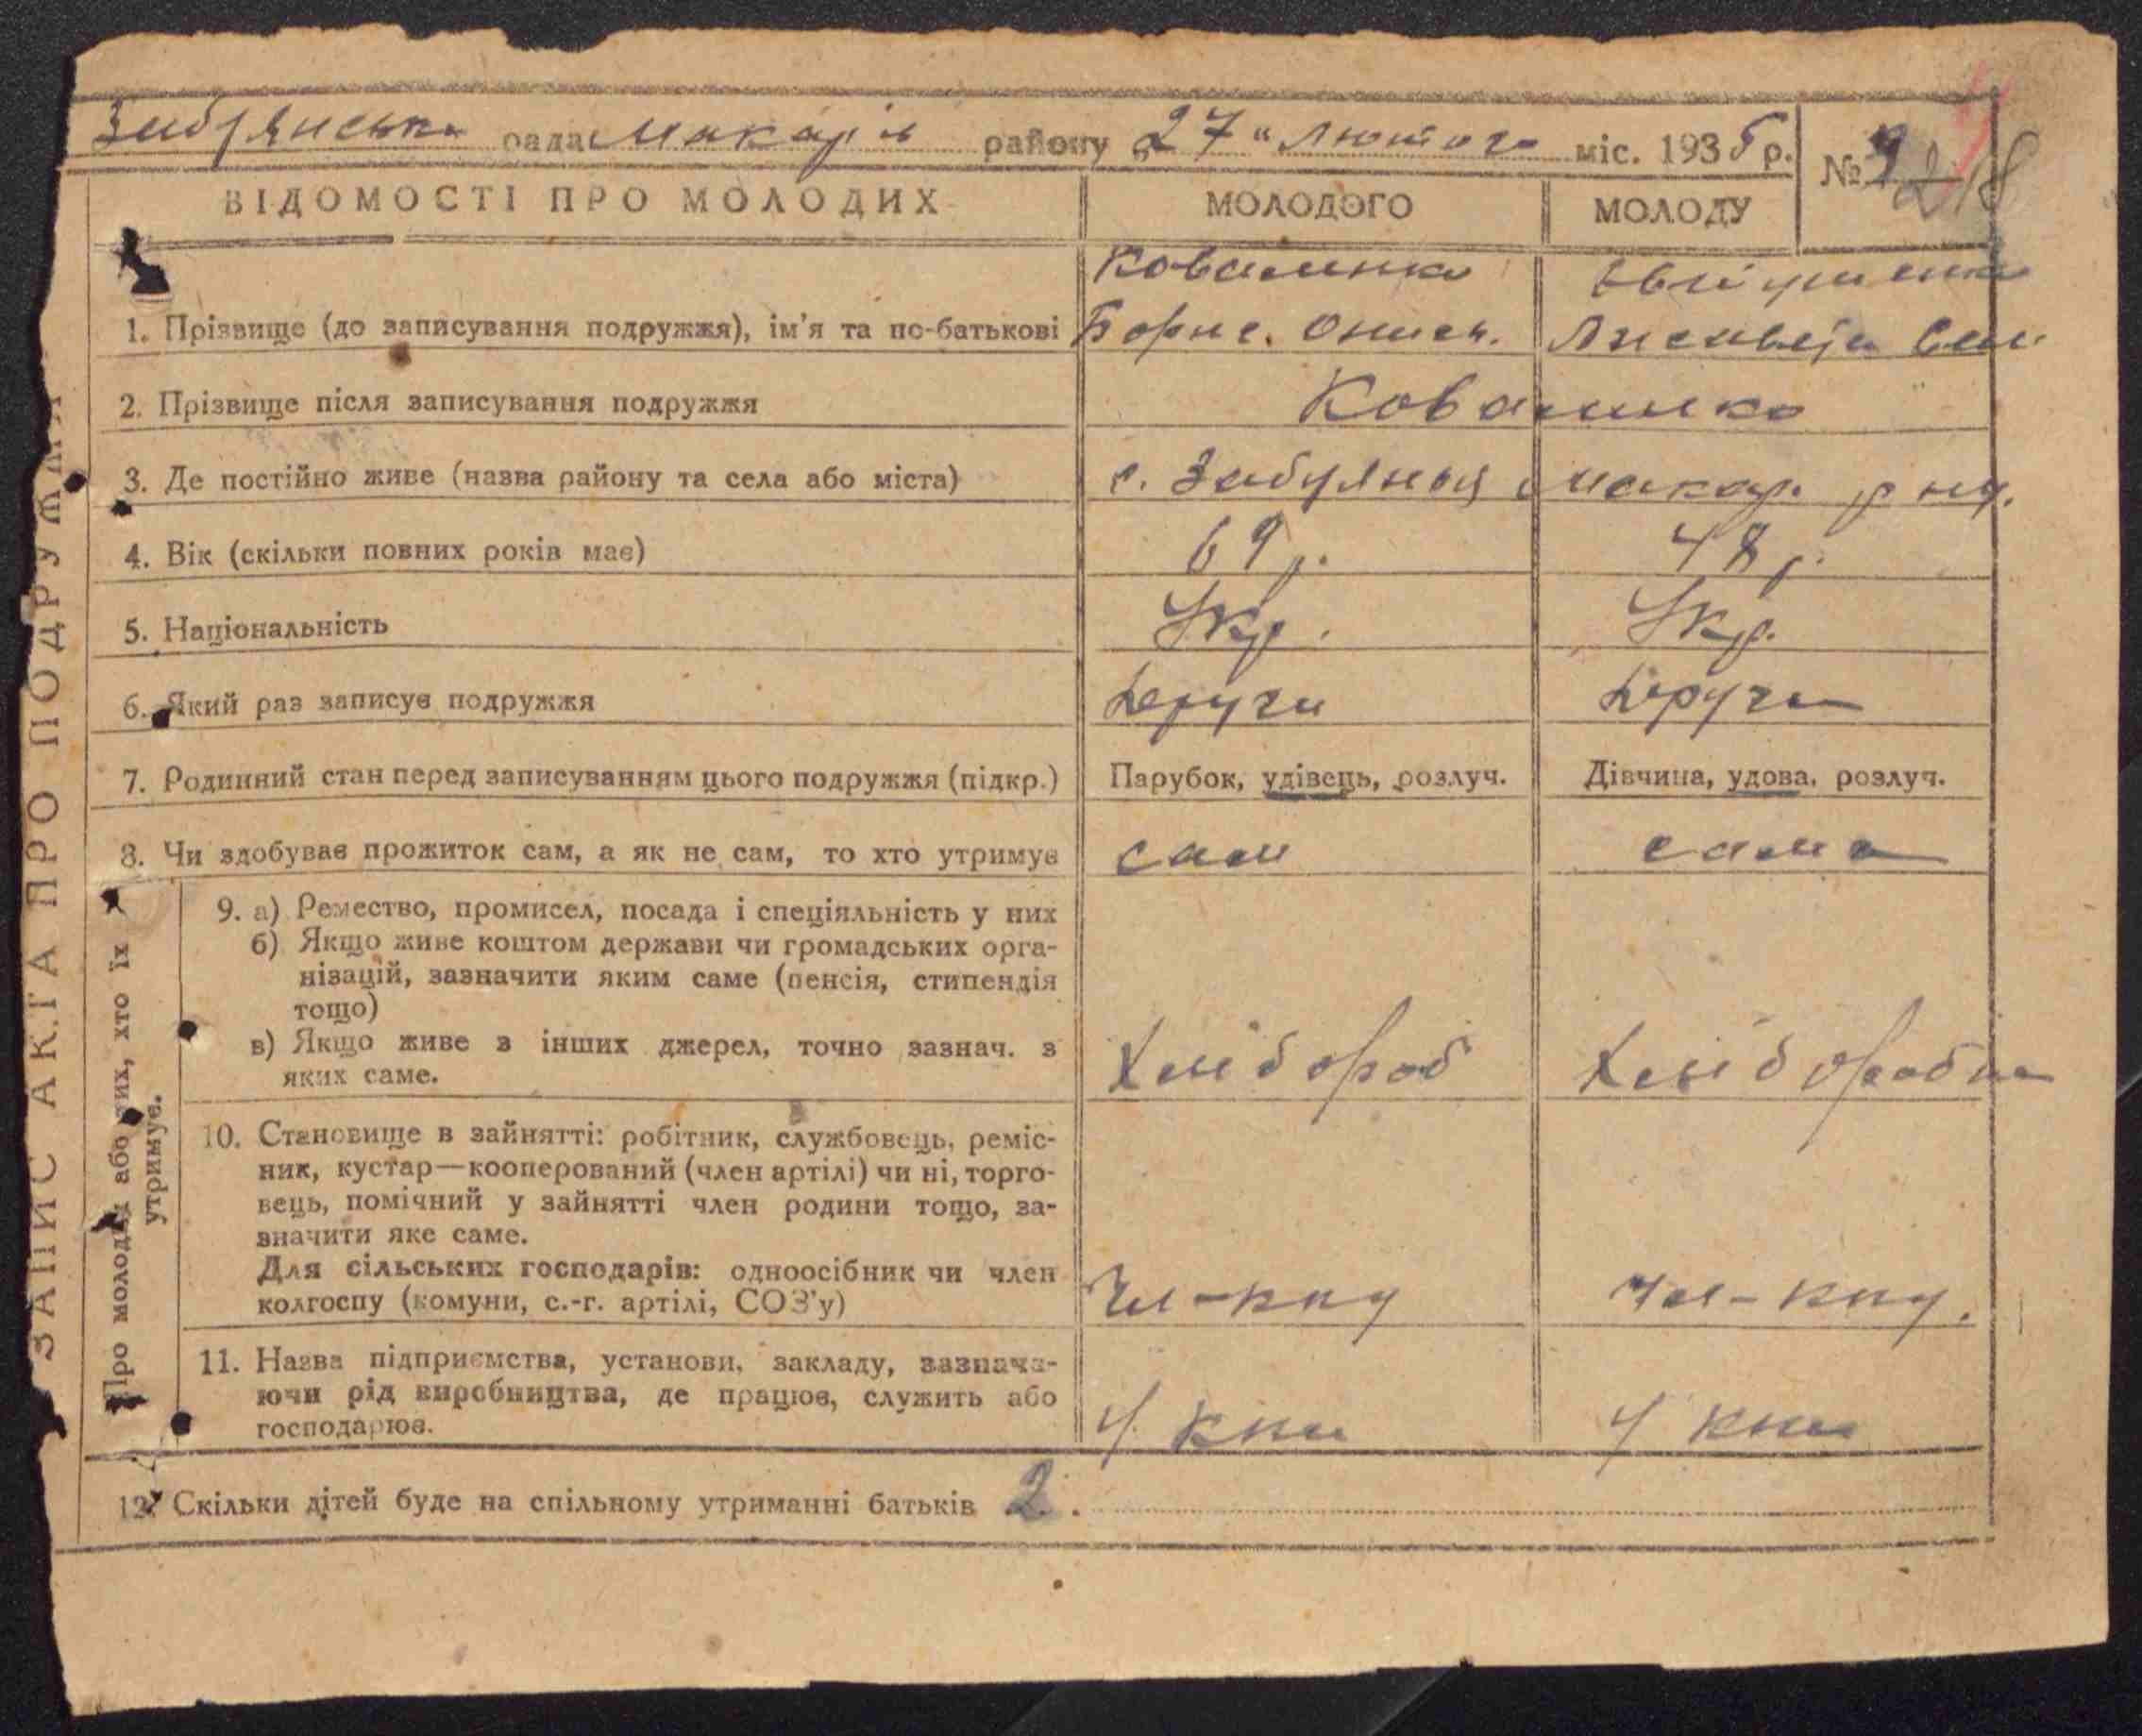 рада Макарів району „27“ Лютого міс. 1935 р. №
ВІДОМОСТІ ПРО МОЛОДИХ МОЛОДОГО МОЛОДУ
Коваленко
1. Прізвище (до записування подружжя), ім'я та по-батькові Борис. Онисм.
2. Прізвище після записування подружжя Коваленко
3. Де постійно живе (назва району та села або міста) с. Забуяння Макар. р-ну.
4. Вік (скільки повних років має) 69 р. 48 р.
5. Національність Укр. Укр.
6. Який раз записує подружжя Други Други
7. Родинний стан перед записуванням цього подружжя (підкр.) Парубок, удівець, розлуч. Дівчина, удова, розлуч.
8. Чи здобуває прожиток сам, а як не сам, то хто утримує сам сама
9. а) Ремество, промисел, посада і спеціяльність у них
б) Якщо живе коштом держави чи громадських орга-
нізацій, зазначити яким саме (пенсія, стипендія
тощо)
в) Якщо живе з інших джерел, точно зазнач. з
яких саме. Хлібороб Хліборобка
10. Становище в зайнятті: робітник, службовець, реміс-
ник, кустар—кооперований (член артілі) чи ні, торго-
вець, помічний у зайнятті член родини тощо, за-
значити яке саме.
Для сільських господарів: одноосібник чи член
колгоспу (комуни, с.-г. артілі, СОЗ'у) Чл-кпу Чл-кпу.
11. Назва підприємства, установи, закладу, зазнача-
ючи рід виробництва, де працює, служить або
господарює. У У
12. Скільки дітей буде на спільному утриманні батьків 2.
ЗАПИС АКТА ПРО ПОДРУЖЖЯ
Про молодих або тих, хто їх
утримує.